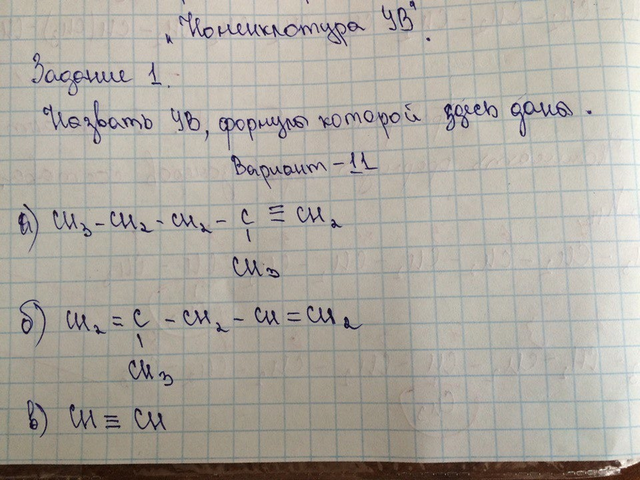 "Номенклатура УВ".
Задание 1.
Назвать УВ, формулы которой здесь даны.
Вариант - 11
а) CH3 - CH2 - CH2 - C ≡ CH2
CH3
б) CH2 = C - CH2 - CH = CH2
CH3
в) CH ≡ CH